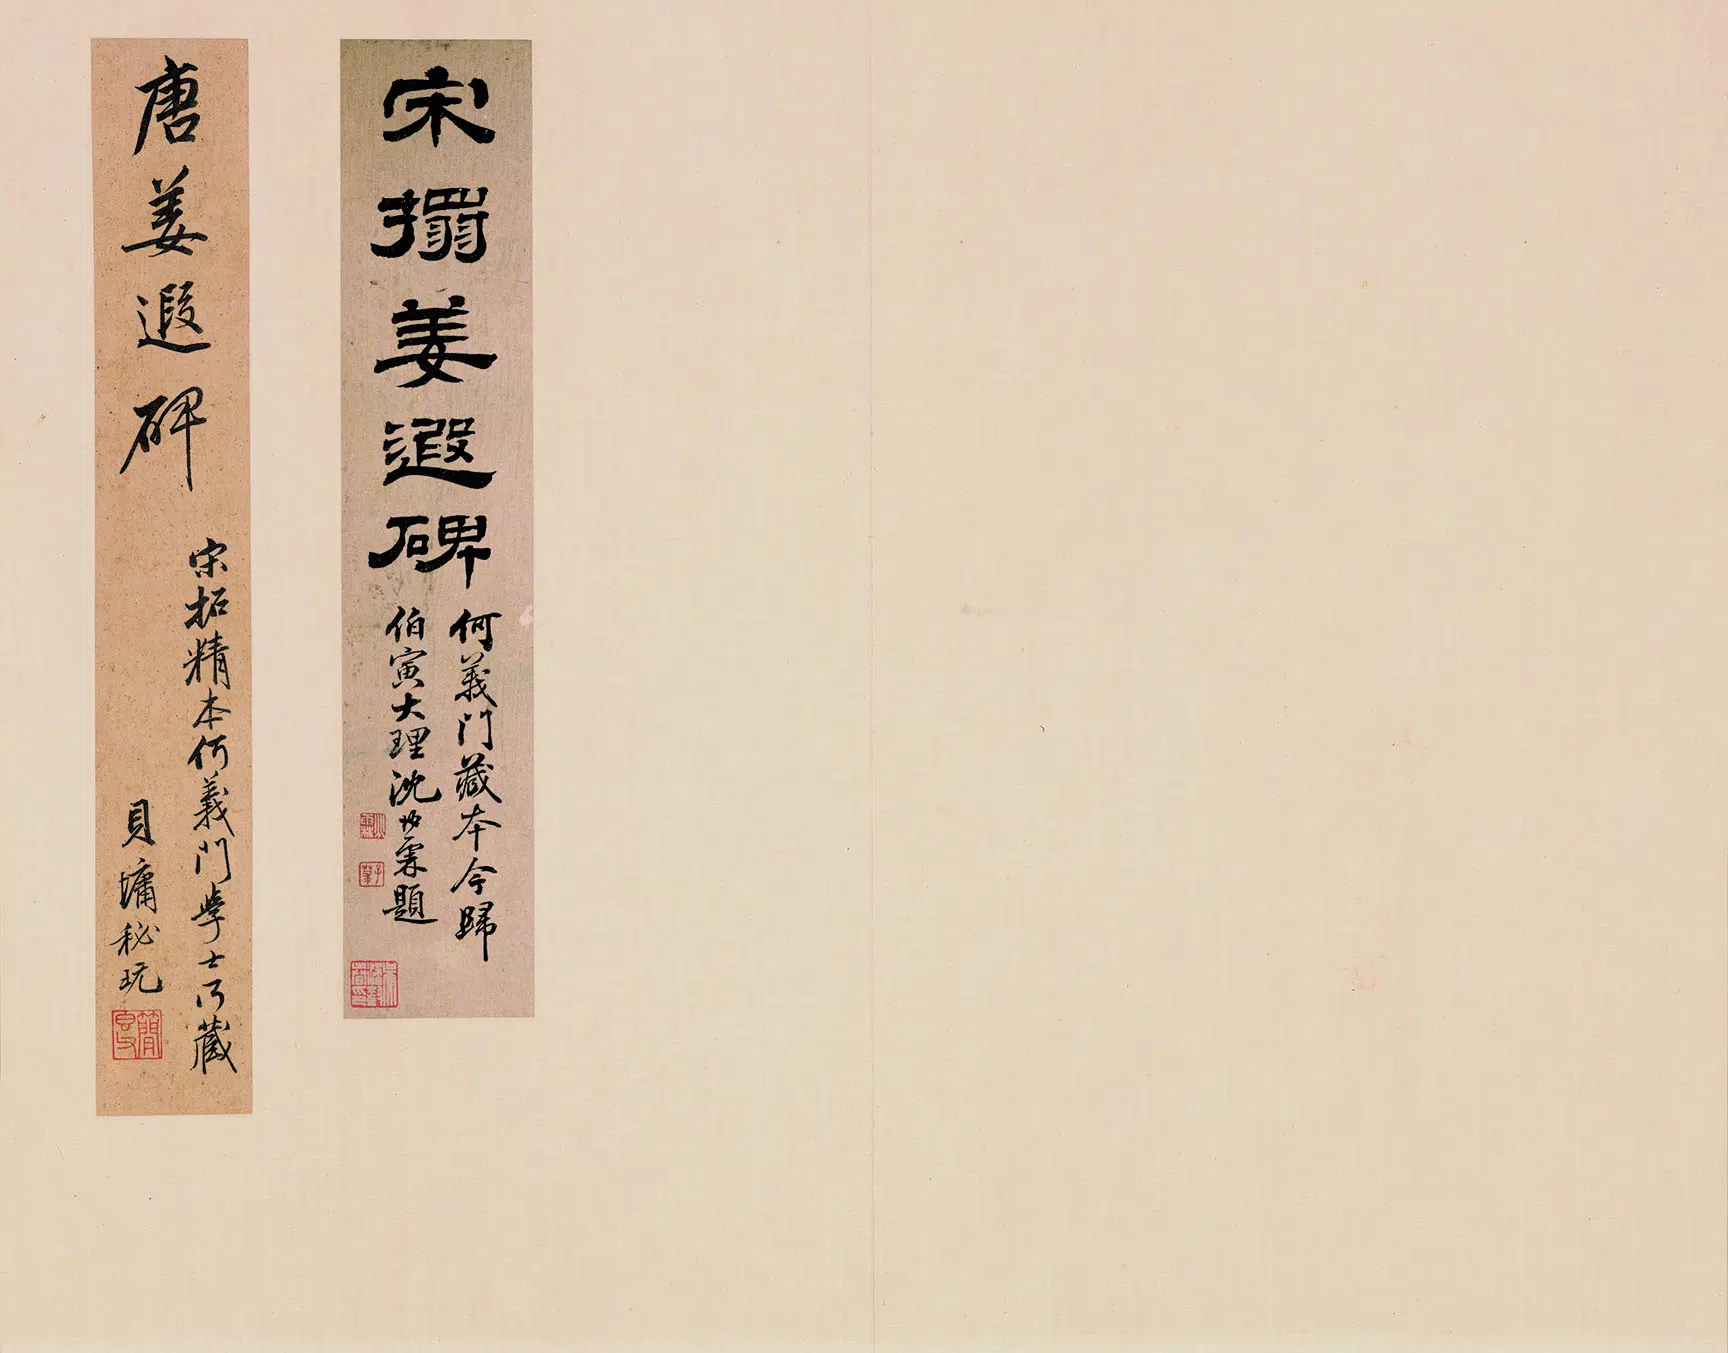 宋搨姜遐碑
何義門藏本今歸
伯寅大理沈樹霖題
唐姜遐碑
宋拓精本何義門學士所藏
貝墉秘玩